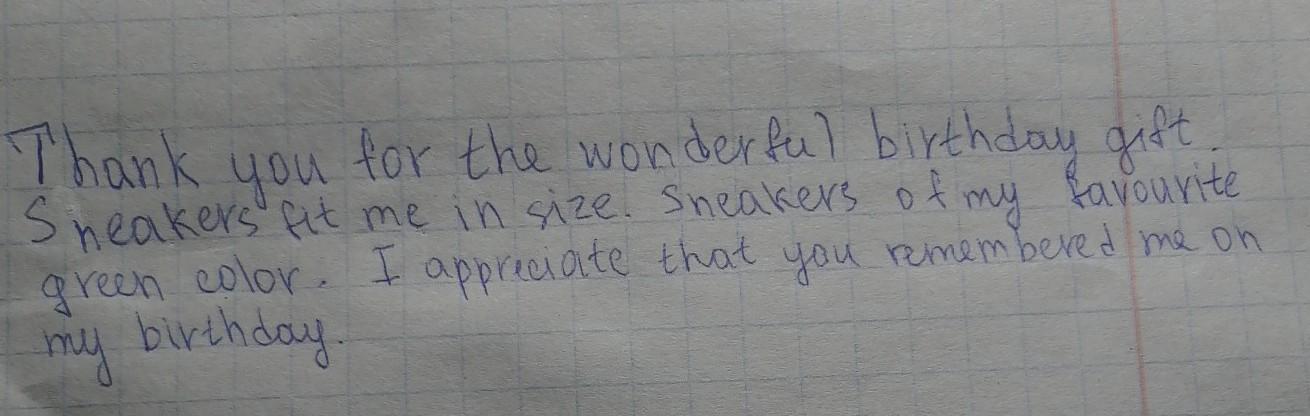 Thank you for the wonderful birthday gift.
Sneakers fit me in size. Sneakers of my favourite
green color. I appreciate that you remembered me on
my birthday.